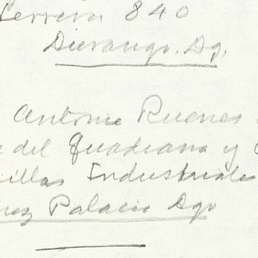 Herrera 840
Durango. Dg.
Antonio Buenas
e del Guadiana y C
illas Industriales
mez Palacio Dgo